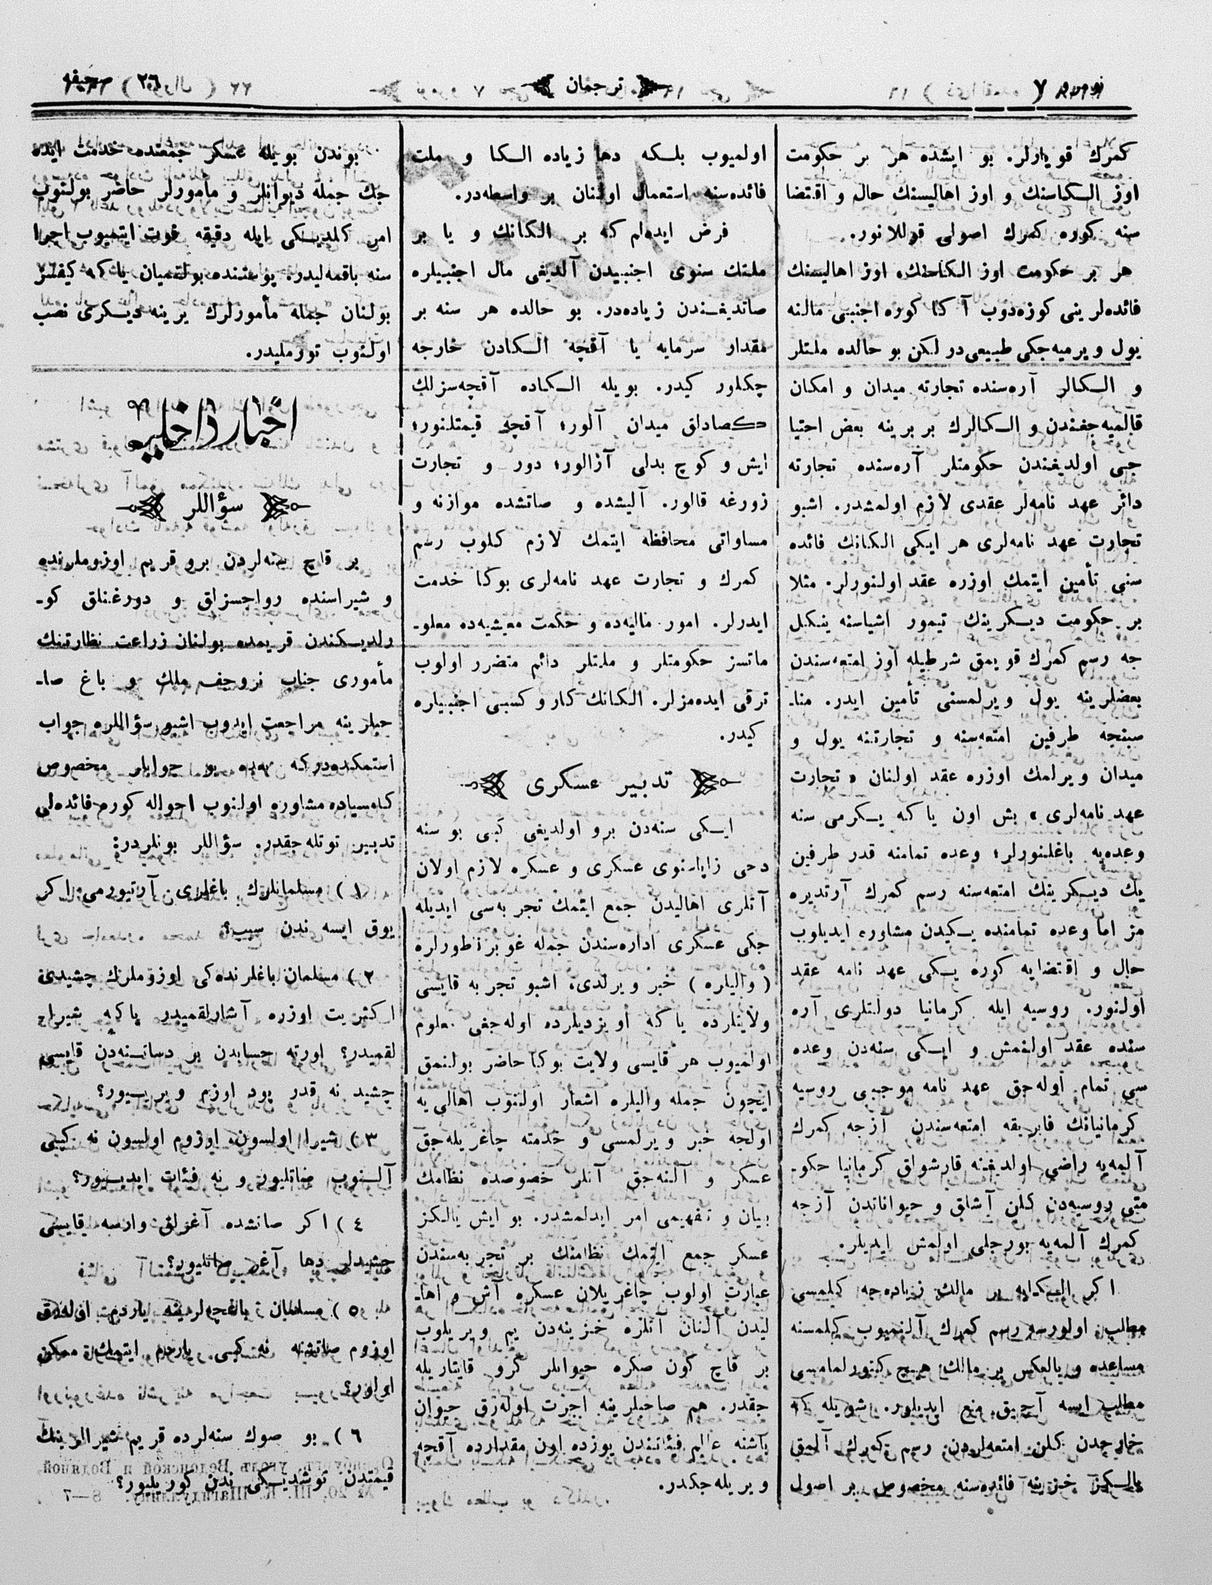 نومرو ٧
ترجمان
صحيفه ٢٦
كمرك قويارلر. بو ايشده هر بر حكومت
اوز الكاسنك و اوز اهاليسنك حال و اقتضا
سنه كوره كمرك اصولى قوللانور.
هر بر حكومت اوز الكاحنك، اوز اهاليسنك
فائده‌لرينى كوزه‌دوب آكا كوره اجنبى مالنه
يول ويرميه‌جكى طبيعى‌در لكن بو حالده ملتلر
و الكالر آره‌سنده تجارته ميدان و امكان
قالميه‌جغندن و الكالرك بر برينه بعض احتيا
جى اولديغندن حكومتلر آره‌سنده تجارته
دائر عهد نامه‌لر عقدى لازم اولمشدر. اشبو
تجارت عهد نامه‌لرى هر ايكى الكانك فائده
سنى تأمين ايتمك اوزره عقد اولنورلر. مثلا
بر حكومت ديكرينك تيمور اشياسنه ينكل
جه رسم كمرك قويمق شرطيله اوز امتعه‌سندن
بعضلرينه يول ويرلمسنى تأمين ايدر. منا-
سبتجه طرفين امتعه‌سنه و تجارتنه يول و
ميدان ويرلمك اوزره عقد اولنان «تجارت
عهد نامه‌لرى» بش اون ياكه يكرمى سنه
وعده‌يه باغلنورلر؛ وعده تمامنه قدر طرفين
يك ديكرينك امتعه‌سنه رسم كمرك آرتديره
مز اما وعده تمامنده يكيدن مشاوره ايديلوب
حال و اقتضايه كوره يكى عهد نامه عقد
اولنور. روسيه ايله كرمانيا دولتلرى آره
سنده عقد اولنمش و ايكى سنه‌دن وعده
سى تمام اوله‌جق عهد نامه موجبى روسيه
كرمانيانك فابريقه امتعه‌سندن آزجه كمرك
آلمه‌يه راضى اولديغنه قارشولق كرمانيا حكو-
متى روسيه‌دن كلن آشلق و حيواناتدن آزجه
كمرك آلمه‌يه بورجلى اولمش ايديلر.
اكر الكايه بر مالك زياده‌جه كلمسى
مطلب اولورسه رسم كمرك آلنميوب كلمسنه
مساعده و بالعكس بر مالك هيچ كتورلمامسى
مطلب ايسه آچيق منع ايديلور. شويله كه
خارجدن كلن امتعه‌لردن رسم كمرك آلمق
يالكز خزينه فائده‌سنه مخصوص بر اصول
اولميوب بلكه دها زياده الكا و ملت
فائده‌سنه استعمال اولنان بر واسطه‌در.
فرض ايده‌لم كه بر الكانك و يا بر
ملتك سنوى اجنبيدن آلديغى مال اجنبيلره
صاتديغندن زياده‌در. بو حالده هر سنه بر
مقدار سرمايه يا آقچه الكادن خارجه
چكلور كيدر. بويله الكاده آقچه‌سزلك
كصادلق ميدان آلور؛ آقچه قيمتلنور؛
ايش و كوچ بدلى آزالور؛ دور و تجارت
زورغه قالور. آليشده و صاتشده موازنه و
مساواتى محافظه ايتمك لازم كلوب رسم
كمرك و تجارت عهد نامه‌لرى بوكا خدمت
ايدرلر. امور ماليه‌ده و حكمت معيشيه‌ده معلو-
ماتسز حكومتلر و ملتلر دائم متضرر اولوب
ترقى ايده‌مزلر. الكانك كار و كسبى اجنبيلره
كيدر.
تدبير عسكرى
ايكى سنه‌دن برو اولديغى كبى بو سنه
دخى زاپاسنوى عسكرى و عسكره لازم اولان
آتلرى اهاليدن جمع ايتمك تجربه‌سى ايديله
جكى عسكرى اداره‌سندن جمله غوبرناطورلره
(واليلره) خبر ويرلدى. اشبو تجربه قايسى
ولايتلرده ياكه اويزديلرده اوله‌جغى معلوم
اولميوب هر قايسى ولايت بوكا حاضر بولنمق
ايچون جمله واليلره اشعار اولنوب اهالى‌يه
اولجه خبر ويرلمسى و خدمته چاغريله‌جق
عسكر و آلنه‌جق آتلر خصوصده نظامك
بيان و تفهيمى امر ايدلمشدر. بو ايش يالكز
عسكر جمع ايتمك نظامنك بر تجربه‌سندن
عبارت اولوب چاغريلان عسكره آش و اها-
ليدن آلنان آتلره خزينه‌دن يم ويريلوب
بر قاچ كون صكره حيوانلر كرو قايتاريله
جقدر. هم صاحبلرينه اجرت اوله‌رق حيوان
باشنه عالم فيئاتندن يوزده اون مقدارده آقچه
ويريله‌جكدر.
بوندن بويله عسكر جمعنده خدمت ايده
جك جمله ديوانلر و مامورلر حاضر بولنوب
امر كلديكى ايله دقيقه فوت ايتميوب اجرا
سنه باقمه‌ليدر. يوعسنده بولنميان ياكه كيفسز
بولنان جمله مأمورلرك يرينه ديكرى نصب
اولنوب تورمليدر.
اخبار داخليه
سؤاللر
بر قاچ سنه‌لردن برو قريم اوزوملرنده
و شيراسنده رواجسزلق و دورغنلق كو-
رلديكندن قريمده بولنان زراعت نظارتنك
مأمورى جناب ملك و باغ صا-
حبلرينه مراجعت ايدوب اشبو سؤاللره جواب
استمكده‌در كه بو جوابلر مخصوص
مشاوره اولنوب احواله كوره فائده‌لى
تدبير توتله‌جقدر. سؤاللر بونلردر:
١) مسلمانلرك باغلرى آرتيورمى؟ اكر
يوق ايسه ندن سبب؟
٢) مسلمان باغلرنده‌كى اوزوملرك چشيدى
اكثريت اوزره آشارلقميدر ياكه شيرا-
لقميدر؟ اورته حسابدن بر دساتنه‌دن قايسى
چشيد نه قدر پود اوزم ويريور؟
٣) شيرا اولسون، اوزوم اولسون نه كبى
آلنوب صاتليور و نه فئات ايديور؟
٤) اكر صاتشده آغرلق وارسه قايسى
چشيدلر دها آغر صاتليور؟
٥) مسلمان باغچه‌لرينه ياردم اوله‌رق
اوزوم صاتشنه نه كبى ياردم ايتمك ممكن
اولور؟
٦) بو صوك سنه‌لرده قريم شيرالرينك
قيمتدن توشديكى ندن كوريليور؟